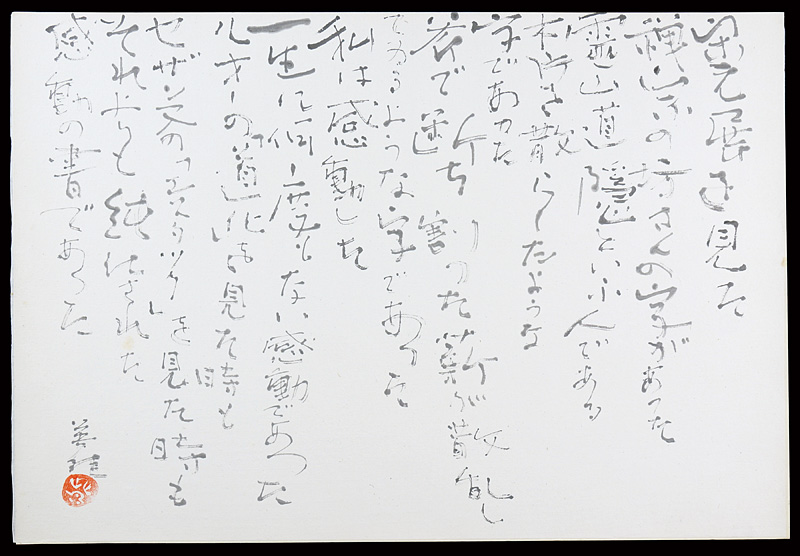 宋元展を見た
禅宗の坊さんの字があった
霊山道隠といふ人である
木片を散らしたような
字であった
斧で打ち割った薪が散乱し
てゐるような字であった
私は感動した
一生に何度もない感動であった
ルオーの「道化」を見た時も
セザンヌの「エスタック」を見た時も
それよりも純化された
感動の書であった